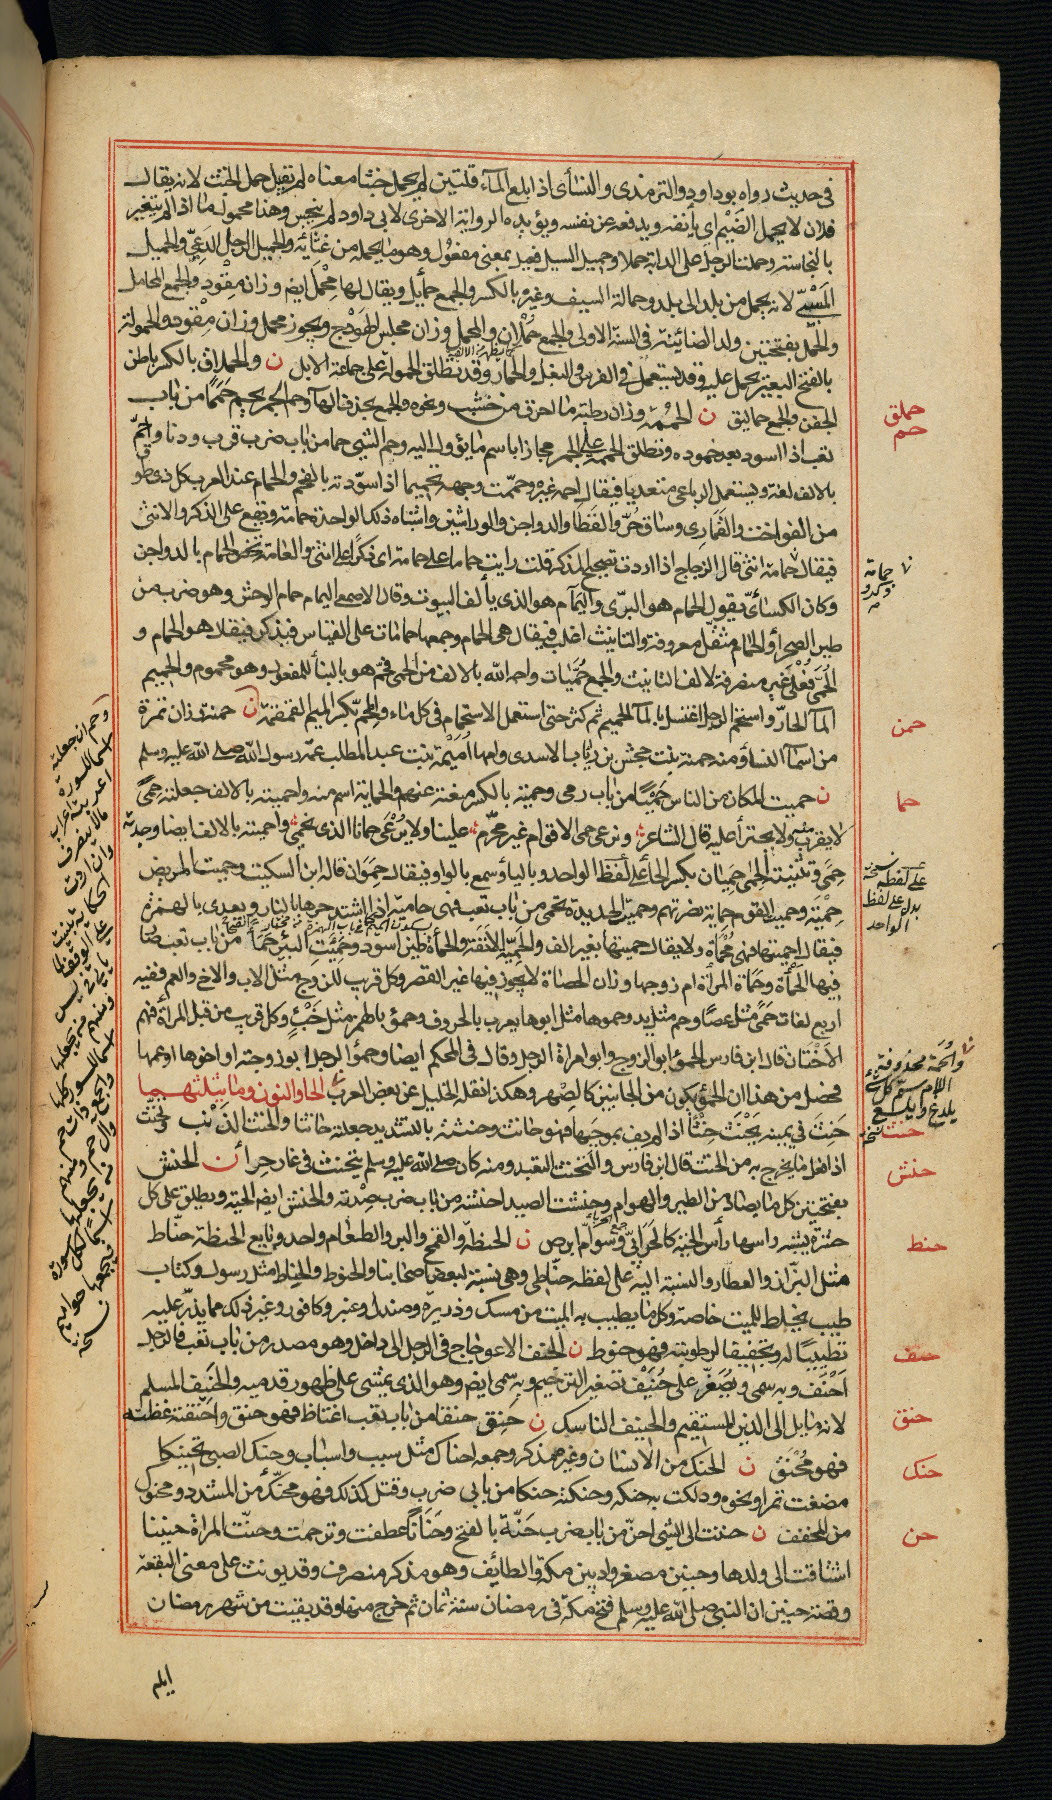 في حديث رواه ابو داود والترمذي والنسأى اذا بلغ المآء قلتين لم يحمل خبثا معناه لم يقبل حمل الخبث لانه يقال
فلان لا يحمل الضَيْم اي يأنفه ويدفعه عن نفسه ويؤيده الرواية الاخرى لابي داود لم ينجس وهذا محمول ما اذا لم يتغير
بالنجاسة وحملت الرجل على الدابة حملا وحميل السيل فعيل بمعنى مفعول وهو ما يحمله من غثائه والحميل الرجل الدَعِيّ والحميل
المَسْبِيّ لانه يحمل من بلد الى بلد وحمالة السيف وغيره بالكسر والجمع حمآيل ويقال لها مِحْمل ايضا وزان مِقْود والجمع المحامل
والحَمَل بفتحتين ولد الضائنة في السنة الاولى والجمع حُمْلان والمحمل وزان مجلس الهَوْدج ويجوز محمل وزان مِقْود والحمولة
بالفتح البعير يحمل عليه وقد يستعمل في الفرس والبغل والحمار وقد تطلق الحمولة على جماعة الابل ن والحملاق بالكسر باطن
الجفن والجمع حماليق ن الحُممة وزان رطبة ما احرق من خشب ونحوه والجمع بحذف الهآء وحم الجمر يحم حَمَمًا من باب
تعب اذا اسود بعد خموده وتطلق الحممة على الجمر مجازا باسم ما يؤول اليه وحم الشي حما من باب ضرب قرب ودنا واحمّ
بالالف لغة ويستعمل الرباعي متعديا فيقال احمه غيره وحمّمت وجهه تحميما اذا سوّدته بالفحم والحمام عند العرب كل ذي طوق
من الفواخت والقَمارِي وساق حُرّ والقَطا والدواجن والوراشين واشباه ذلك الواحدة حمامة ويقع على الذكر والانثى
فيقال حمامة انثى قال الزجاج اذا اردت تصحيح المذكر قلت رايت حماما على حمامة اى ذكرًا على انثى والعامة تخص الحمام بالدواجن
وكان الكسائيّ يقول الحمام هو البرّى واليَمَام هو الذي يألف البيوت وقال الاصمعي اليمام حمام الوحش وهو ضرب من
طير الصحرآ والحمّام مثقّل معروفة والتانيث اغلب فيقال هي الحمام وجمعها حمامات على القياس فيذكر فيقال هو الحمام و
الحُمّى فُعْلَى غير منصرفة لالف التانيث والجمع حُمَّيات واحمه الله بالالف من الحمى فحُمّ هو بالبناء للمفعول وهو محموم والحميم
المآ الحارّ واستحم الرجل اغتسل بالمآ الحميم ثم كثر حتى استعمل الاستحمام في كل مآء والمِحَمّ بكسر الميم القمقمة ن حمنة وزان تمرة
من اسمآ النسآء ومنه حمنة بنت جحش بن رئاب الاسدى وامها اُمَيْمة بنت عبد المطلب عمة رسول الله صلى الله عليه وسلم
ن حميت المكان من الناس حَمْيًا من باب رمى وحمية بالكسر منعته عنهم والحماية اسم منه واحميته بالالف جعلته حِمًى
لا يقرب ولا يجترأ عليه قال الشاعر ونرعى حمى الاقوام غير محرّم علينا ولا يُرْعَى حمانا الذي نحمي واحميته بالالف ايضا وجدته
حِمًى وتثنية الحِمَى حِمَيان بكسر الحآ على لفظ الواحد وباليآء وسمع بالواو فيقال حِمَوَان قاله ابن السكيت وحميت المريض
حِمْيَة وحميت القوم حماية نصرتهم وحميت الحديدة تحمى من باب تعب فهي حامية اذا اشتد حرها بالنار ويعدى بالهمزة
فيقال احميتها فهي مُحْمَاة ولا يقال حميتها بغير الف والحَمِيّة الاَنَفَة والحمأة طين اسود وحَمِئَتِ البئر حَمَأً من باب تعب صار
فيها الحَمْأَة وحَمَاة المرأة ام زوجها وزان الحصاة لا يجوز فيها غير القصر وكل قريب للزوج مثل الاب والاخ والعم ففيه
اربع لغات حَمًى مثل عصًا وحم مثل يد وحموها مثل ابوها يعرب بالحروف وحمؤ بالهمز مثل خَبْءٍ وكل قريب من قبل المرأة فهم
الاَخْتَان قال ابن فارس الحمؤ ابو الزوج وابو امرأة الرجل وقال في المحكم ايضا وحمؤ الرجل ابو زوجته او اخوها او عمها
فحصل من هذا ان الحمؤ يكون من الجانبين كالصِهْر وهكذا نقله الخليل عن بعض العرب الحا والنون وما يثلثهما
حَنِثَ في يمينه يَحْنَث حِنْثًا اذا لم يف بموجَبها فهو حانث وحنثته بالتشديد جعلته حانثا والحنث الذنب وتحنث
اذا فعل ما يخرج به من الحنث قال ابن فارس والتحنث التعبد ومنه كان صلى الله عليه وسلم يتحنث في غار حرآ ن الحنش
بفتحتين كل ما يصاد من الطير والهوام وحنشت الصيد احنشه من باب ضرب صِدْته والحنش ايضا الحية ويطلق على كل
حشرة يشبه راسها رأس الحية كالحَرَابِيّ وسَوَامّ ابرص ن الحنطة والقمح والبر والطعام واحد وبايع الحنطة حنّاط
مثل البزّاز والعطار والنسبة اليه على لفظه حنّاطي وهي نسبة لبعض اصحابنا والحنوط والحِنَاط مثل رسول وكتاب
طيب يخلط للميت خاصة وكل ما يطيب به الميت من مسك وذريرة وصندل وعنبر وكافور وغير ذلك مما يذرّ عليه
تطييبًا له وتجفيفا لرطوبته فهو حنوط ن الحنف الاعوجاج في الرجل الى داخل وهو مصدر من باب تعب فالرجل
اَحْنَف وبه سمى ويُصَغَّر على حُنَيْف تصغير الترخيم وبه سمى ايضا وهو الذي يمشي على ظهور قدميه والحَنِيف المسلم
لانه مايل الى الدين المستقيم والحنيف الناسك ن حَنِق حنقا من باب تعب اغتاظ فهو حنق واَحْنَقته غظته
فهو مُحْنَق ن الحنَك من الانسان وغيره مذكر وجمعه احناك مثل سبب واسباب وحنك الصبي تحنيكا
مضغت تمرا ونحوه ودلكت به حنكه وحنكته حنكا من بابي ضرب وقتل كذلك فهو محنّك من المشدد ومحنوك
من المخفف ن حننت الى الشي احنّ من باب ضرب حَنّة بالفتح وحَنَانًا عطفت وترحمت وحنّت المرأة حنينا
اشتاقت الى ولدها وحنين مصغر واد بين مكة والطائف وهو مذكر منصرف وقد يونث على معنى البقعة
وقصة حنين ان النبي صلى الله عليه وسلم فتح مكة في رمضان سنة ثمان ثم خرج منها وقد بقيت من شهر رمضان
ايام
حملق
حم
حمامة
وذكر
حمن
حما
على لفظه نسخة
بدل على لفظ
الواحد
والحُمَة محذوفة
اللام سم كل شئ
يلدغ او يلسع
حنث
حنش
حنط
حنف
حنق
حنك
حن